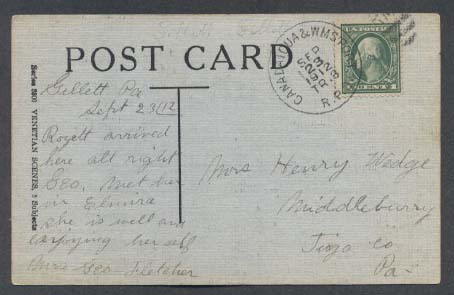 POST CARD
Series 5900 VENETIAN SCENES, Subjects
Gillett Pa
Sept 23/12
arrived
here all right
Geo. met her
in Elmira
she is well and
enjoying her self
Mrs Geo Fletcher
CANANDAIGUA & WMSPORT
SEP
23
R.P.O.
Mrs Henry Wedge
Middlebury
Tioga Co
Pa-